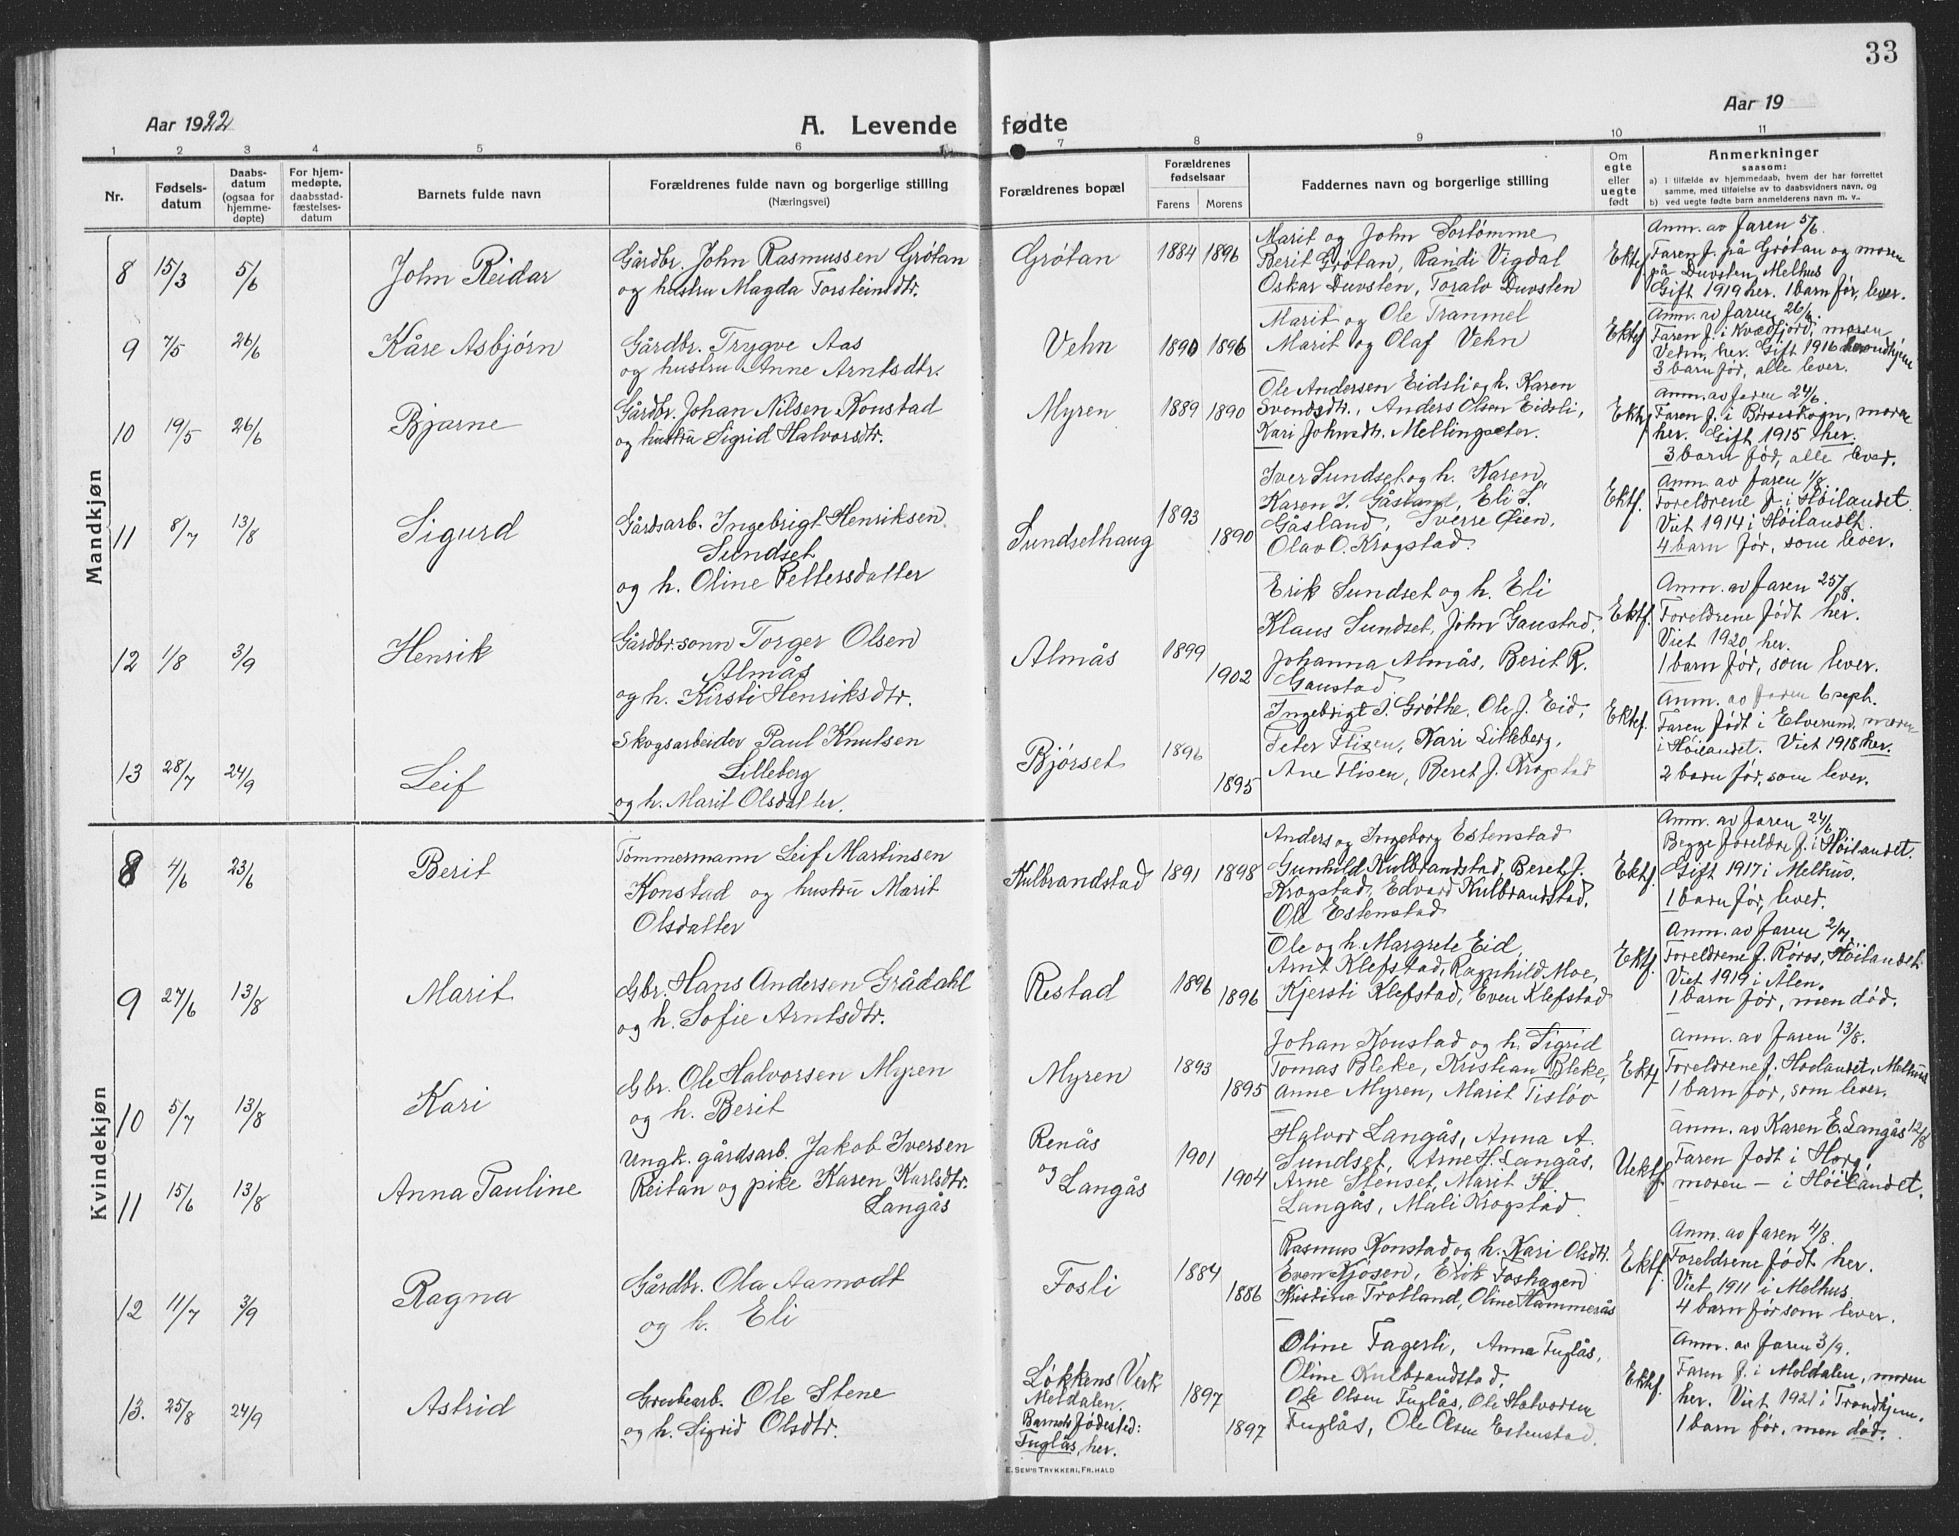 33
Aar 1922
A. Levende fødte
Aar 19
1 2 3 4 5 6 7 8 9 10 11
Nr.
Fødsels-
datum
Daabs-
datum
(ogsaa for
hjemme-
døpte)
For hjem-
medøpte,
daabsstad-
fæstelses-
datum
Barnets fulde navn
Forældrenes fulde navn og borgerlige stilling
(Næringsvei)
Forældrenes bopæl
Forældrenes
fødselsaar
Farens Morens
Faddernes navn og borgerlige stilling
Om
egte
eller
uegte
født
Anmerkninger
saasom:
a) i tilfælde av hjemmedaab, hvem der har forrettet
samme, med tilføielse av to daabsvidners navn, og
b) ved uegte fødte barn anmelderens navn m. v..
Mandkjøn
8 15/3 5/6 John Reidar
Gårdbr. John Rasmussen Grøtan
og hustru Magda Torsteinsdtr.
Grøtan 1884 1896
Marit og John Sortømme
Berit Grøtan, Randi Vigdal
Oskar Duvsten, Toralv Duvsten
Ektef.
Anm. av faren 5/6.
Faren f. på Grøtan og moren
på Duvsten, Melhus
Gift 1919 her. 1 barn før, lever.
9 7/5 26/6 Kåre Asbjørn
Gårdbr. Trygve Aas
og hustru Anne Arntsdtr.
Vehn 1890 1896
Marit og Ole Tranmel
Marit og Olaf Vehn
Ektef
Anm. av faren 26/6
Faren f. i Kvædfjord, moren
Vehn, her. Gift 1916 Trondhjem
3 barn før, alle lever.
10 19/5 26/6 Bjarne
Gårdbr. Johan Nilsen Konstad
og hustru Sigrid Halvorsdtr.
Myren 1889 1890
Ole Andersen Eidsli og h. Karen
Svendsdtr., Anders Olsen Eidsli,
Kari Johnsdtr. Mellingseter.
Ektf
Anm. av faren 24/6.
Faren f. i Børseskogn, moren
her. Gift 1915 her.
3 barn før, alle lever.
11 8/7 13/8 Sigurd
Gårdsarb. Ingebrigt Henriksen
Sundset
og h. Oline Pettersdatter
Sundsethaug 1893 1890
Iver Sundset og h. Karen,
Karen I. Gåsland, Eli I.
Gåsland, Sverre Øien,
Olav O. Krogstad.
Ektf.
Anm. av faren 1/8.
Foreldrene f. i Høilandet.
Viet 1914 i Høilandet.
4 barn før, som lever.
12 1/8 3/9 Henrik
Gårdbr.sønn Torger Olsen
Almås
og h. Kirsti Henriksdtr.
Almås 1899 1902
Erik Sundset og h. Eli
Klaus Sundset, John Gaustad,
Johanna Almås, Berit R.
Gaustad.
Ektf.
Anm. av faren 25/8.
Foreldrene født her.
Viet 1920 her.
1 barn før, som lever.
13 28/7 24/9 Leif
Skogsarbeider Paul Knutsen
Lilleberg
og h. Marit Olsdatter.
Bjørset 1896 1895
Ingebrigt J. Grøthe, Ole J. Eid,
Peter Flisen, Kari Lilleberg,
Ane Flisen, Beret J. Krogstad
Ektef.
Anm. av faren 6 sept.
Faren født i Elverum, moren
i Høilandet. Viet 1918 her.
2 barn før, som lever.
Kvindekjøn
8 4/6 23/6 Berit
Tømmermann Leif Martinsen
Konstad og hustru Marit
Olsdatter
Kulbrandstad 1891 1898
Anders og Ingeborg Estenstad
Gunhild Kulbrandstad, Beret J.
Krogstad, Edvard Kulbrandstad,
Ole Estenstad
Ektf.
Anm. av faren 24/6
Begge foreldre f. i Høilandet.
Gift 1917 i Melhus.
1 barn før, lever.
9 27/6 13/8 Marit
Gbr. Hans Andersen Grådahl
og h. Sofie Arntsdtr.
Restad 1896 1896
Ole og h. Margrete Eid,
Arnt Klefstad, Ragnhild Moe,
Kjersti Klefstad, Even Klefstad
Ektf.
Anm. av faren 2/7.
Foreldrene f. Røros, Høilandet.
Viet 1919 i Ålen.
1 barn før, men død.
10 5/7 13/8 Kari
Gbr. Ole Halvorsen Myren
og h. Berit
Myren 1893 1895
Johan Konstad og h. Sigrid
Tomas Bleke, Kristian Bleke,
Anne Myren, Marit Tisløv
Ektf
Anm. av faren 13/8.
Foreldrene f. Hoilandet, Melhus
1 barn før, som lever.
11 15/6 13/8 Anna Pauline
Ungk. gårdsarb. Jakob Iversen
Reitan og pike Karen Karlsdtr.
Langås
Renås
og
Langås
1901 1904
Halvor Langås, Anna A.
Sundset, Arne H. Langås,
Arne Stenset, Marit H.
Langås, Mali Krogstad.
Uektf
Anm. av Karen E. Langås 12/8
Faren født i Horg,
moren – i Høilandet.
12 11/7 3/9 Ragna
Gårdbr. Ola Aamodt
og h. Eli
Fosli 1884 1886
Rasmus Konstad og h. Kari Olsdtr.
Even Kjøsen, Erik Foshagen
Kristine Trotland, Oline Hammerås
Ektf.
Anm. av faren 4/8.
Foreldrene født her.
Viet 1911 i Melhus.
4 barn før som lever.
13. 25/8 24/9 Astrid
Grubearb. Ole Stene
og h. Sigrid Olsdtr.
Løkkens Verk
Meldalen.
Barnets fødested:
Fuglås, her.
1897 1897
Oline Fagerli, Anna Fuglås,
Oline Kulbrandstad,
Ole Olsen Fuglås, Ole Halvorsen
Fuglås, Ole Olsen Estenstad.
Ektef.
Anm. av faren 3/9.
Faren f. i Meldalen, moren
her. Viet 1921 i Trondhjem.
1 barn før, men død.
E. SEM'S TRYKKERI, FR.HALD